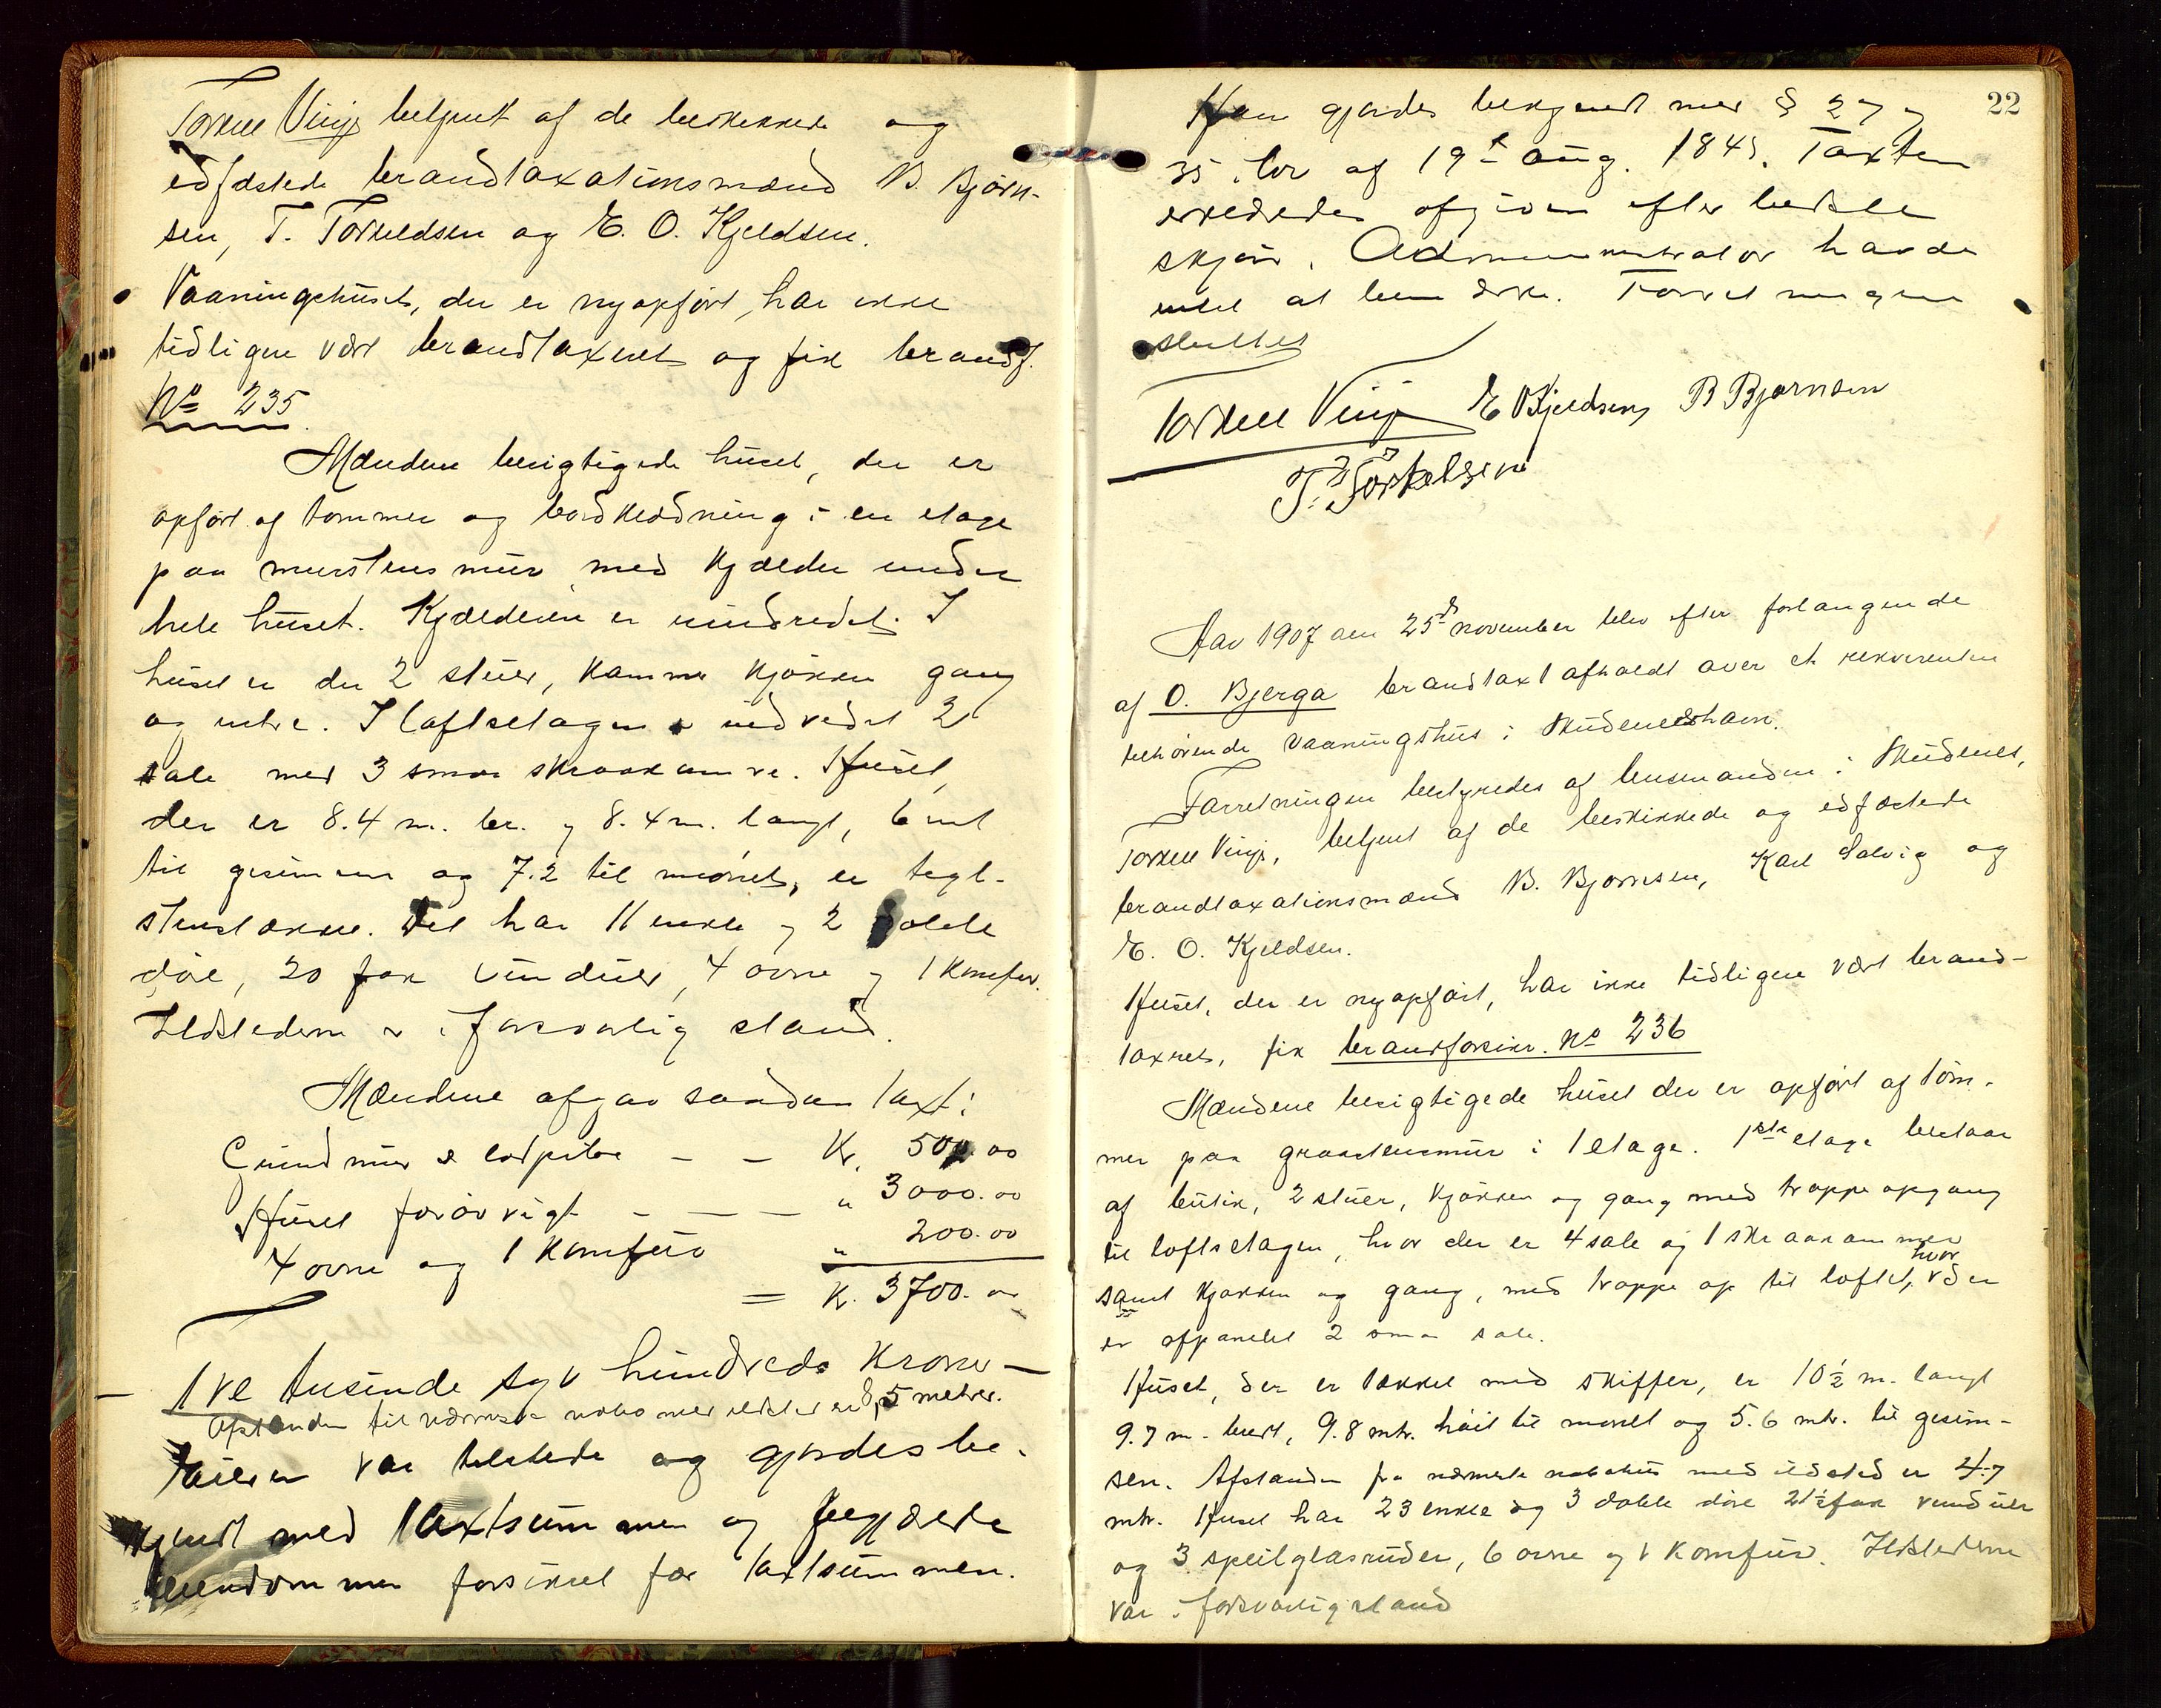 Torkell Vinje betjent af de beskikkede og
edfæstede brandtaxationsmænd B. Bjørn-
sen, T. Torkeldsen og E. O. Kjeldsen.
Vaaningshuset, der er nyopført, har ikke
tidligere vært brandtaxeret og fik brandf.
No 235.
Mændene besigtigede huset, der er
opført af tømmer og bordklædning i en etage
paa murstensmur med kjælder under
hele huset. Kjælderen er uindredet. I
huset er der 2 stuer, kammer kjøkken gang
og entre. I loftsetagen er indredet 2
sale med 3 smaa skraakamre. Huset,
der er 8.4 m. br. og 8.4 m. langt, 6 mt
til gesimsen og 7.2 til mønet, er tegl-
stenstækket. Det har 11 enkle og 2 doble
døre, 20 fag vinduer, 4 ovne og 1 komfur.
Ildstederne er i forsvarlig stand.
Mændene afgav saadan taxt:
Grundmur & lodpibe - - Kr. 500.00
Huset forøvrigt - - - " 3000.00
4 ovne og 1 komfur " 200.00
= Kr. 3700.00
- Tre tusinde syv hundrede kroner -
Afstanden til nærmeste nabo med ildsted er 8,5 metrer.
Eieren var tilstede og gjordes be-
kjendt med taxtsummen og begjærede
eiendommen forsikret for taxtsummen.
22
Han gjordes bekjendt med § 27 og
35 i lov af 19de aug. 1845. Taxten
erklæredes afgiven efter bedste
skjøn. Administrator havde
intet at bemærke. Forretningen
sluttes
Torkell Vinje E Kjeldsen B Bjørnsen
T. Torkelsen
Aar 1907 den 25de november blev efter forlangende
af O. Bjerga brandtaxt afholdt over et rekvirenten
tilhørende vaaningshus i Skudeneshavn.
Forretningen bestyredes af lensmanden i Skudenes,
Torkell Vinje, betjent af de beskikkede og edfæstede
brandtaxationsmænd B. Bjørnsen, Karl Salvig og
E. O. Kjeldsen.
Huset, der er nyopført, har ikke tidligere vært brand-
taxret, fik brandforsikr. No 236
Mændene besigtigede huset der er opført af tøm-
mer paa graastensmur i 1 etage. 1ste etage bestaar
af butik, 2 stuer, kjøkken og gang med trappeopgang
til loftsetagen, hvor der er 4 sale og 1 skraakammer
samt kjøkken og gang, med trappe op til loftet, hvor der
er afpanelet 2 smaa sale.
Huset, der er tækket med skiffer, er 10 1/2 m. langt
9.7 m. bredt, 9.8 mtr. høit til mønet og 5.6 mtr. til gesim-
sen. Afstanden fra nærmeste nabohus med ildsted er 4.7
mtr. Huset har 23 enkle og 3 doble døre 21 1/2 fag vinduer
og 3 speilglasruder, 6 ovne og 1 komfur. Ildstederne
var i forsvarlig stand